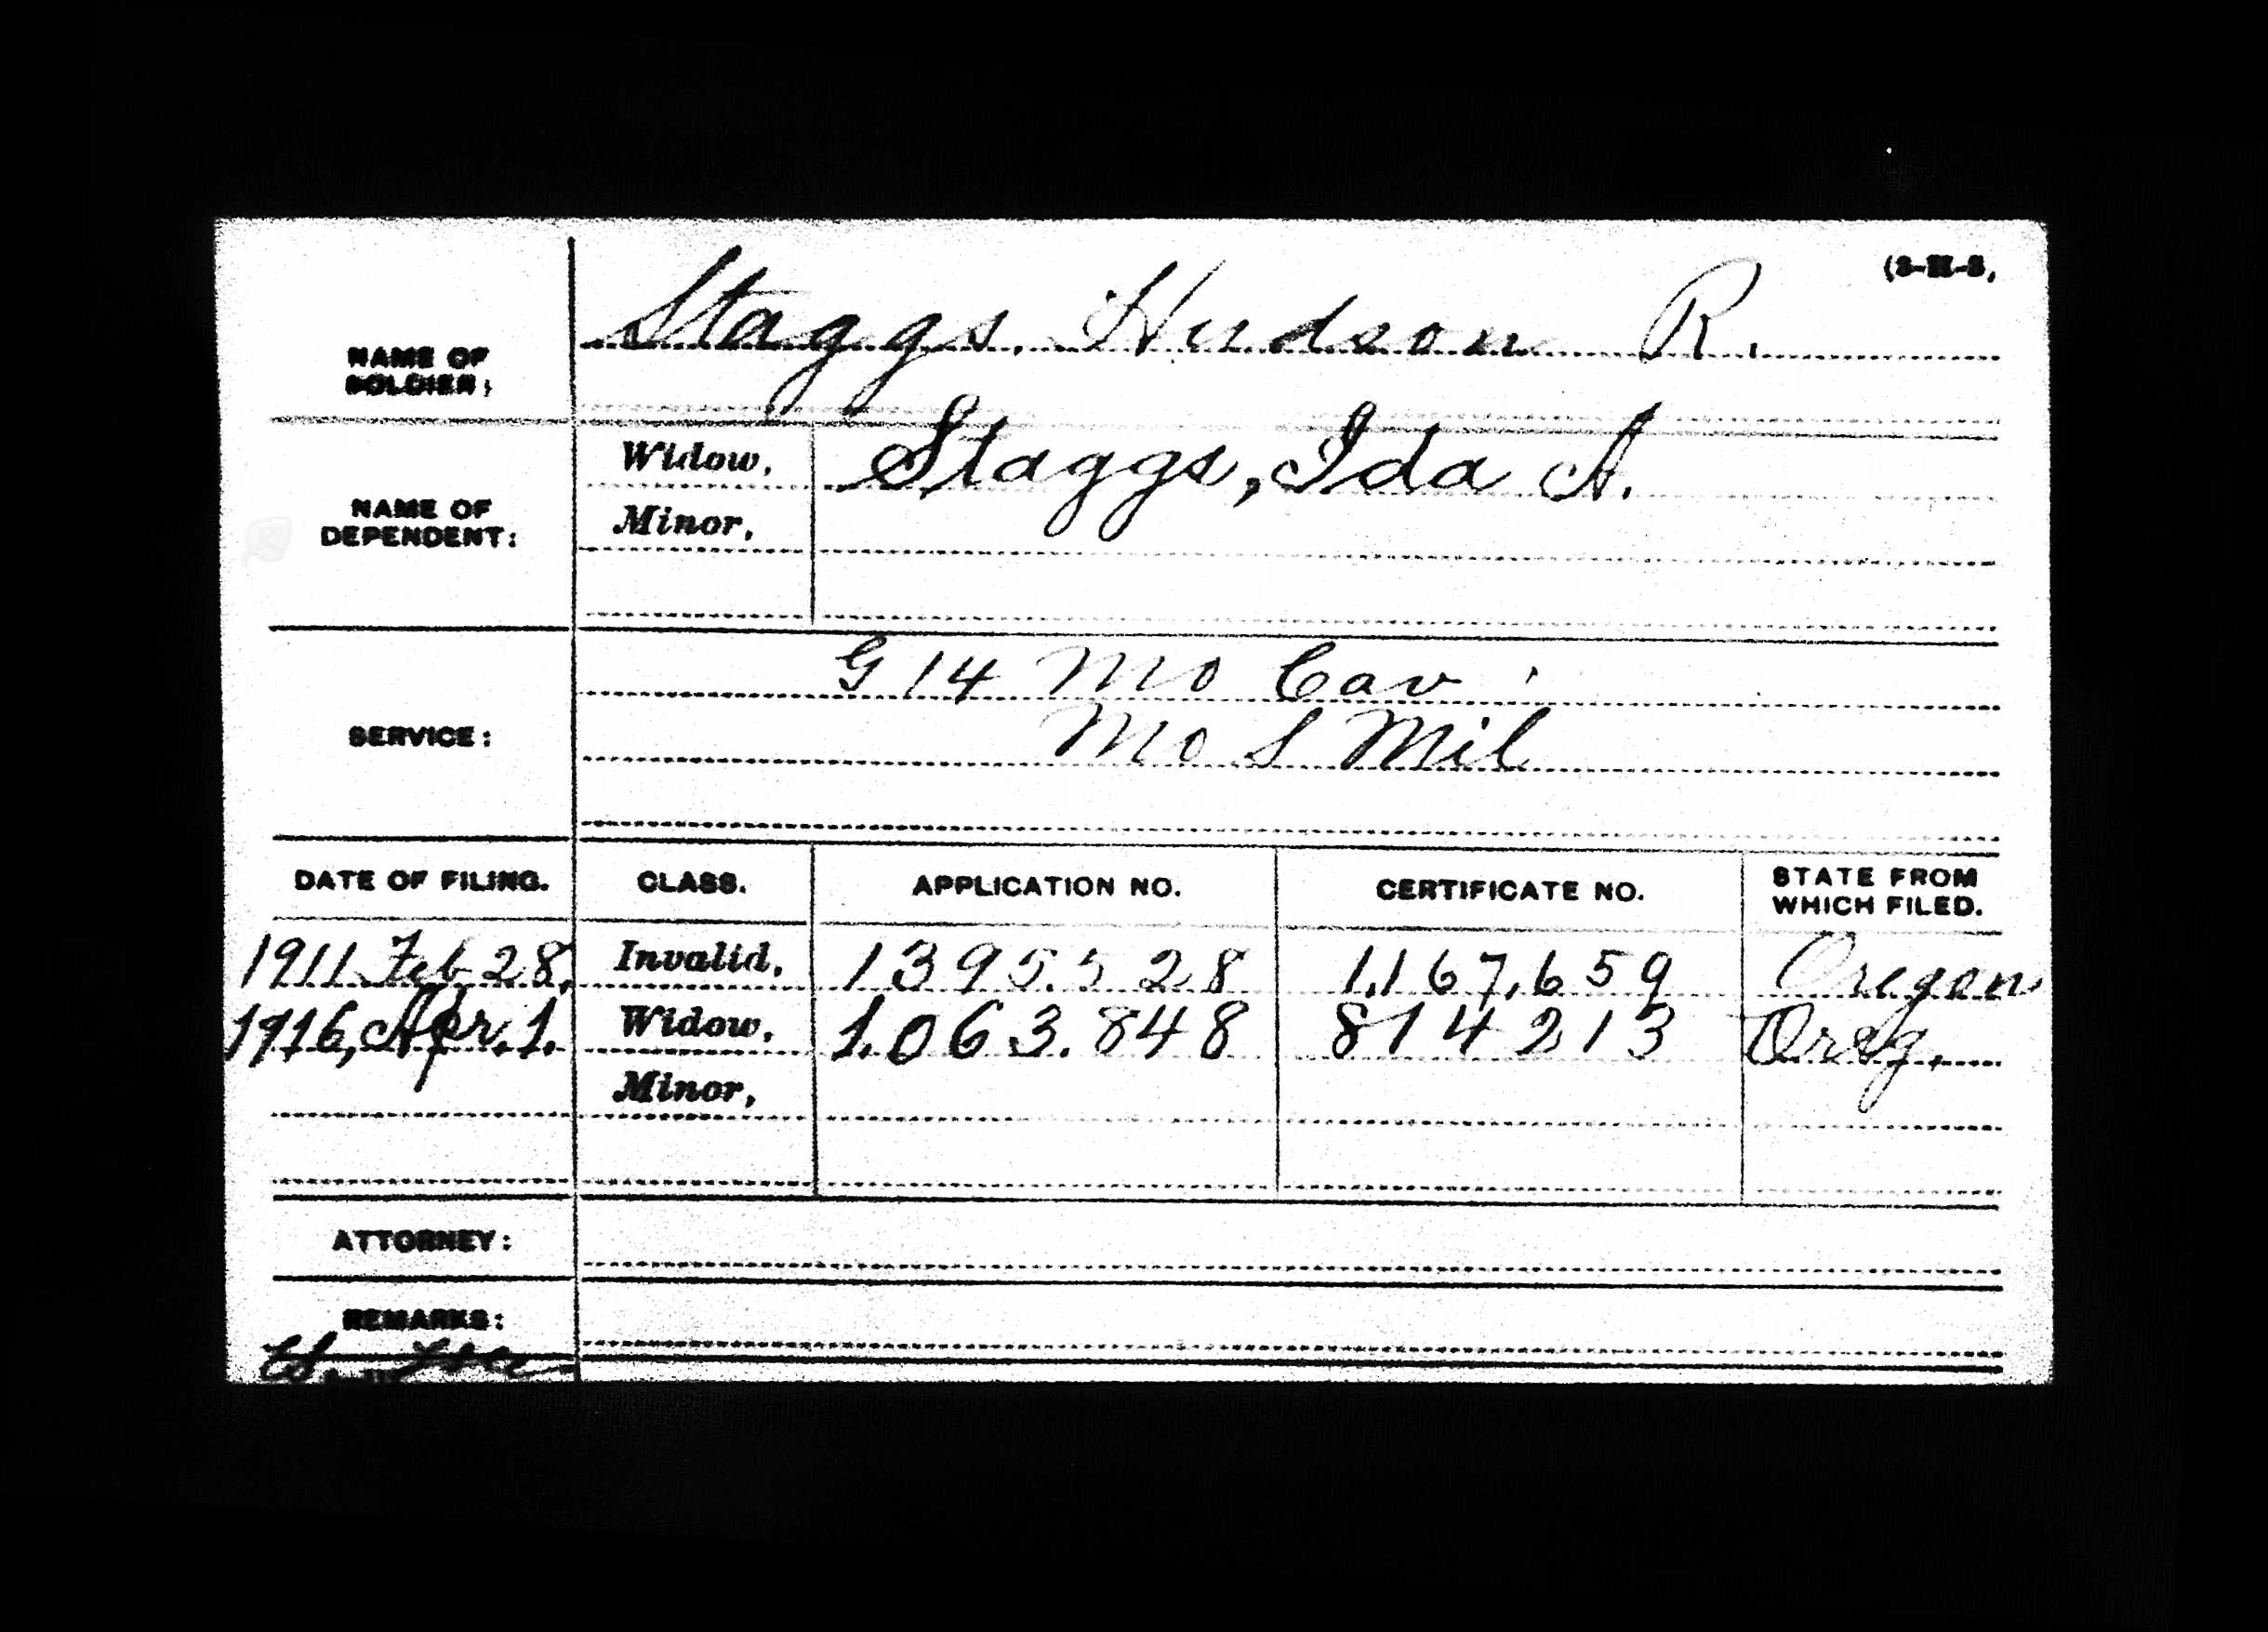 Staggs, Hudson R.
NAME OF
SOLDIER:
Widow,
Staggs, Ida A.
NAME OF
DEPENDENT:
Minor,
G 14 Mo Cav
SERVICE:
Mo S Mil
DATE OF FILING. CLASS. APPLICATION NO. CERTIFICATE NO. STATE FROM
WHICH FILED.
1911 Feb 28, Invalid, 1395.528 1,167,659 Oregon
1916, Apr. 1. Widow, 1.063.848 814213 Oreg.
Minor,
ATTORNEY:
REMARKS: